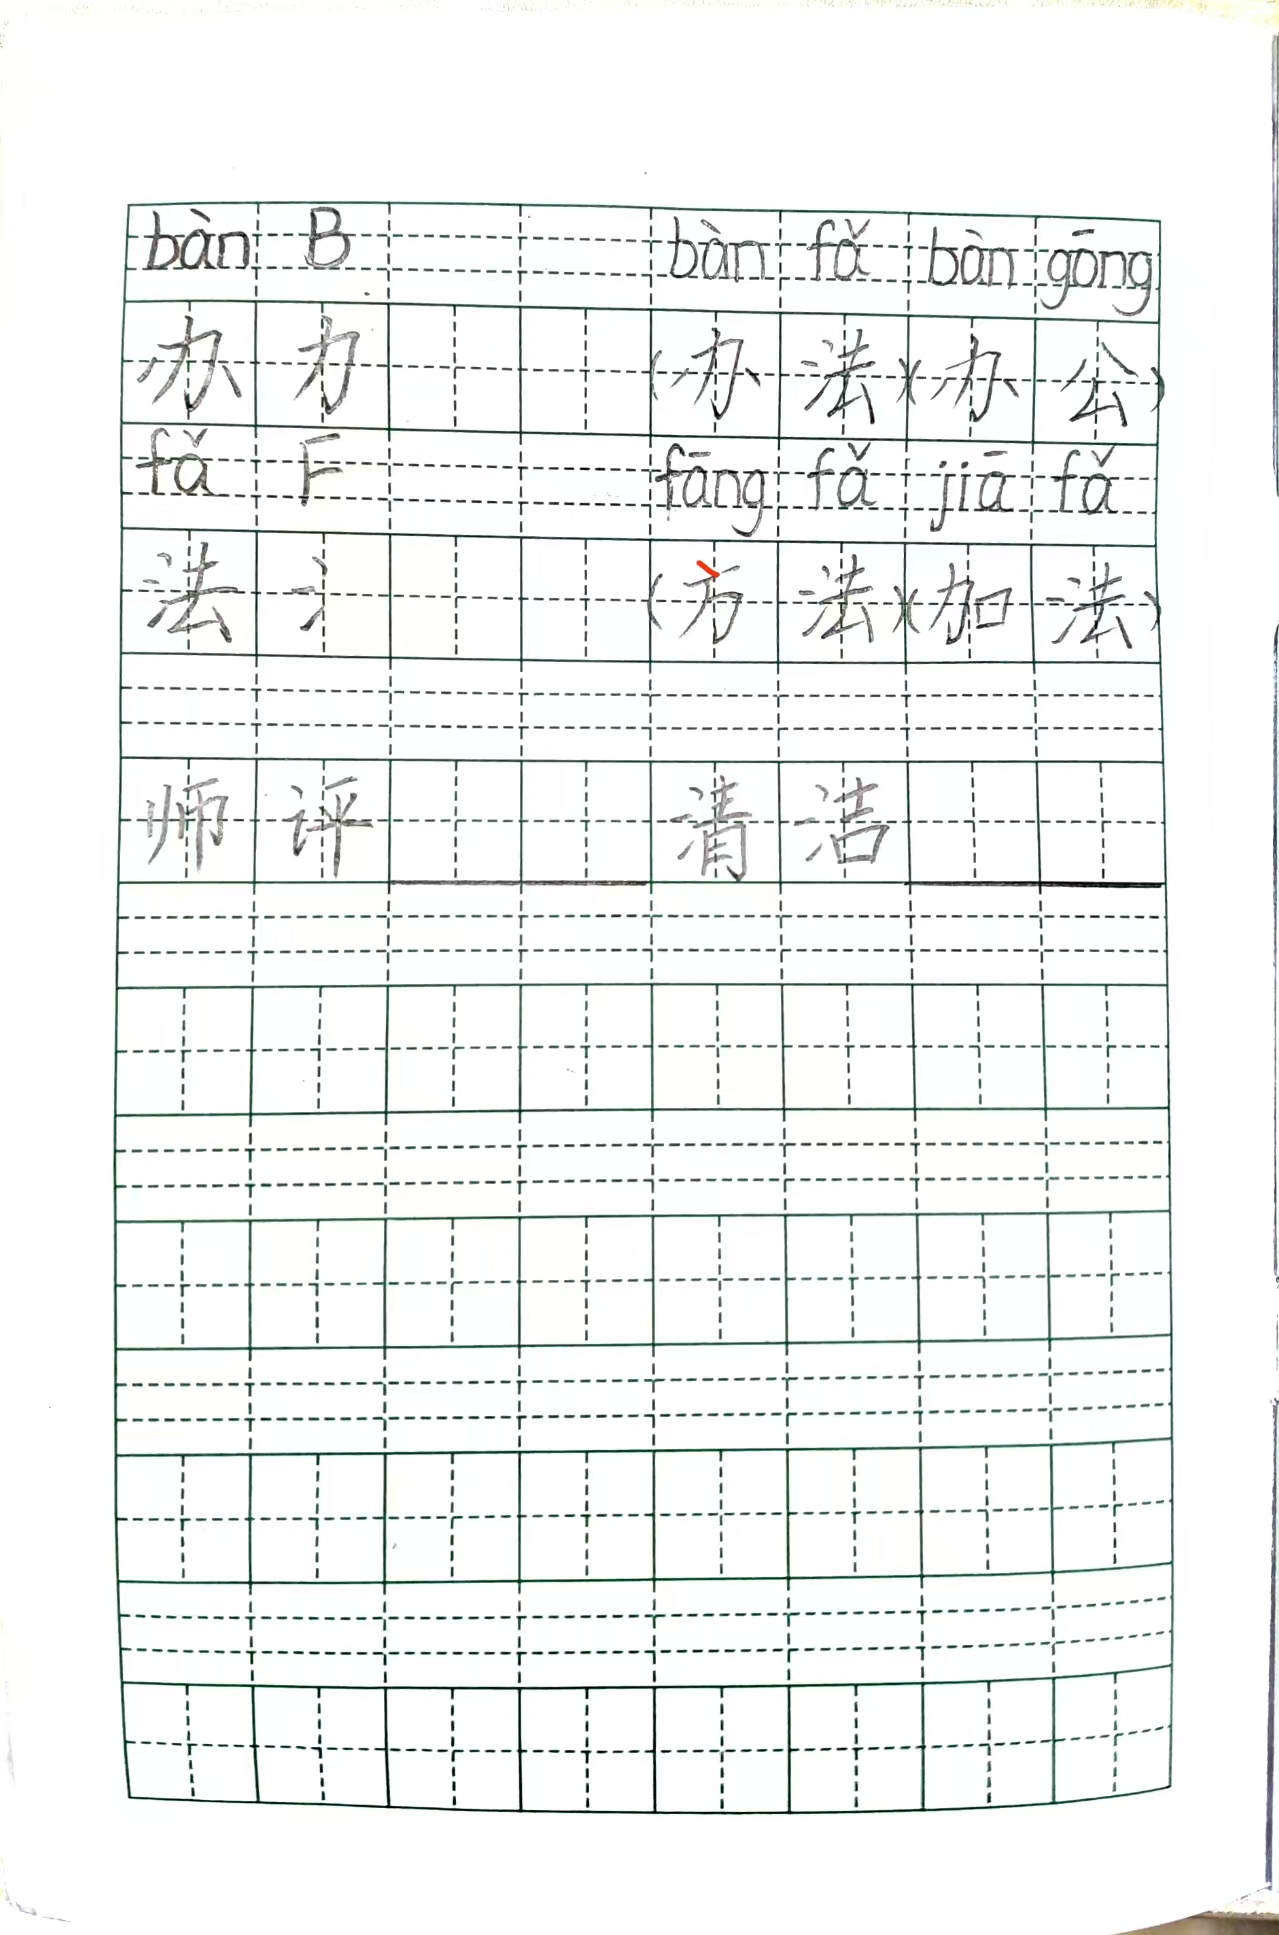 bàn B bàn fǎ bàn gōng
办 力 (办 法)(办 公)
fǎ F fāng fǎ jiā fǎ
法 氵 (方 法)(加 法)
师 评 清 洁